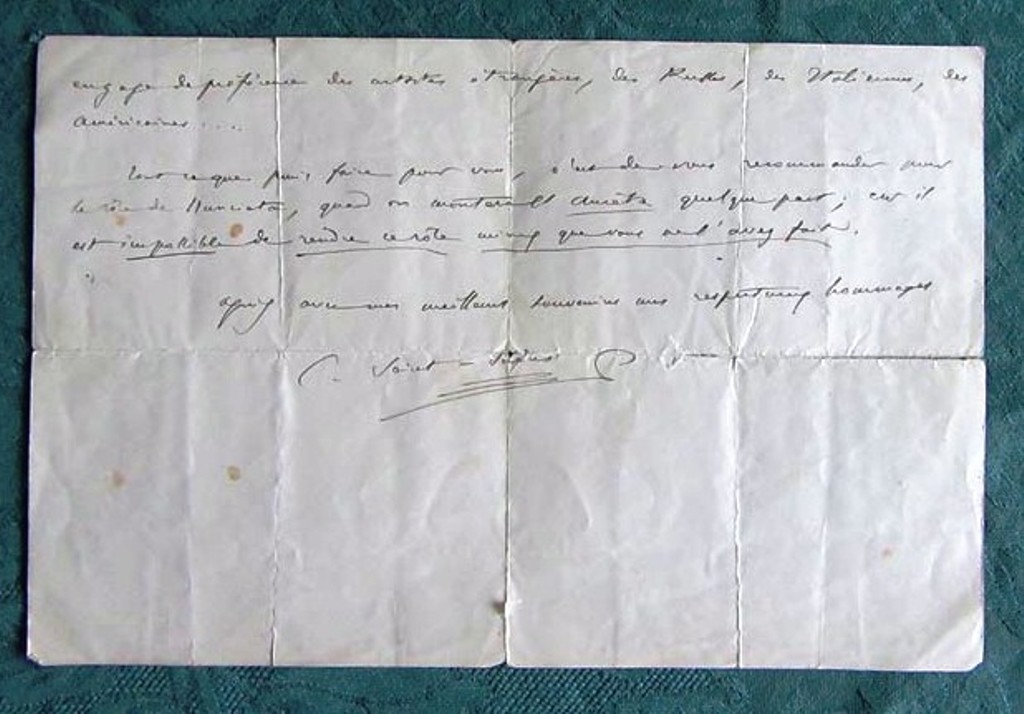 engage de préférence des artistes étrangères, des Russes, des Italiennes, des
Américaines....
Tout ce que puis faire pour vous, c'est de vous recommander pour
le rôle de Nunciata, quand on montera quelque part; car il
est impossible de rendre ce rôle mieux que vous ne l'avez fait.
agréez avec mes meilleurs souvenirs mes respectueux hommages
C. Saint-Saëns